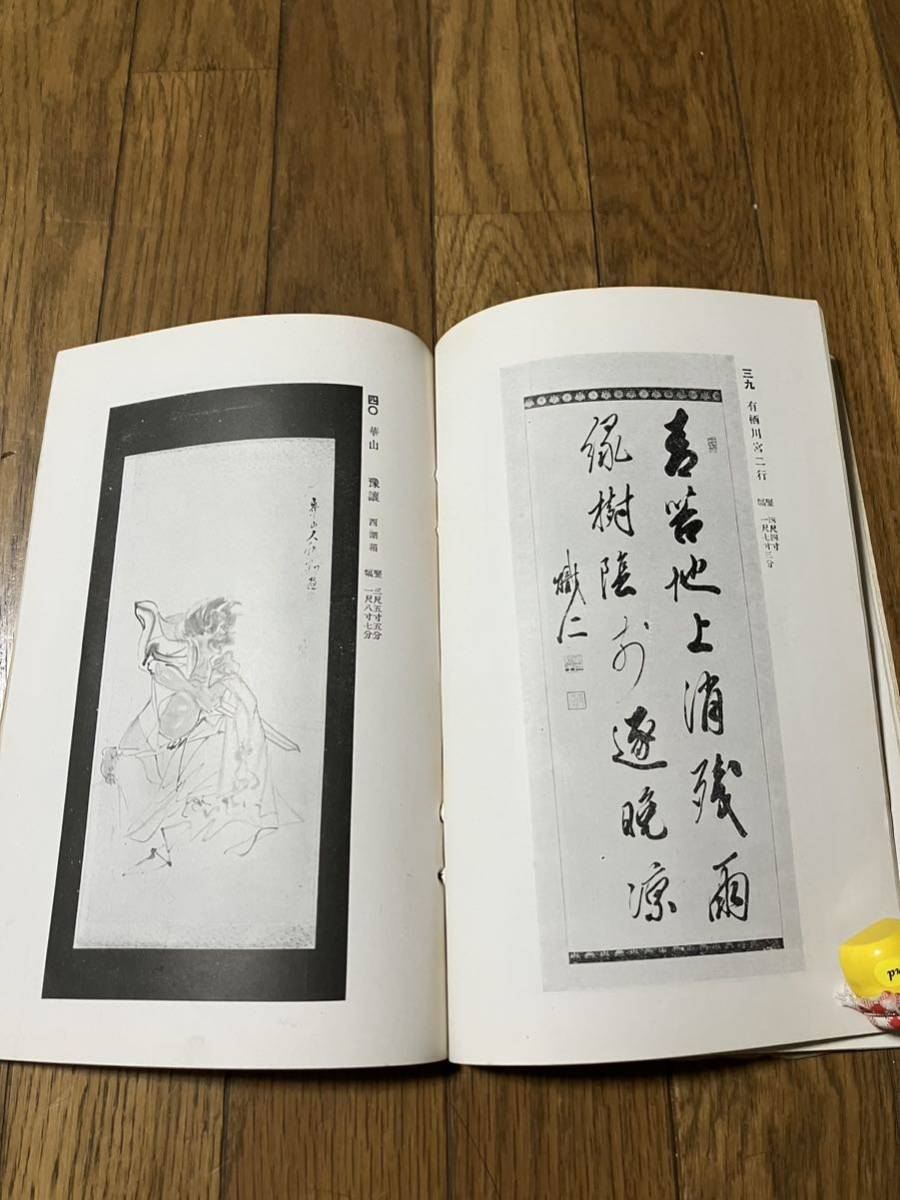 三九 有栖川宮二行 竪 四尺四寸 幅 一尺七寸三分
青苔地上消残雨
緑樹陰前逐晩凉
熾仁
四〇 華山 豫讓 西湖箱 竪 三尺五寸五分 幅 一尺八寸七分